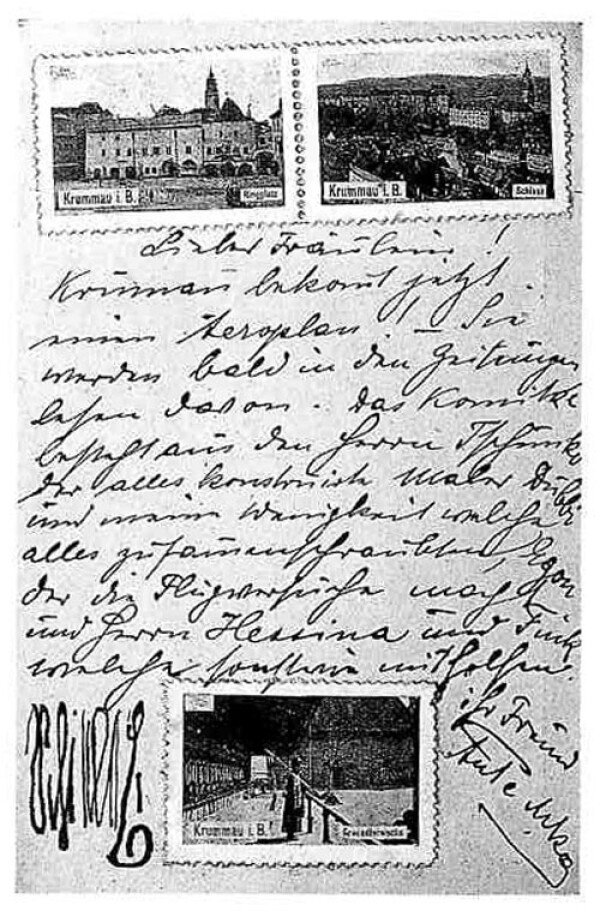 Krummau i. B. Ringplatz
Krummau i. B. Schloss
Liebes Fräulein!
Krumau bekomt jetzt
einen Aeroplan! – Sie
werden bald in den Zeitungen
lesen davon. Das Komitee
besteht aus den Herrn Tschunko
der alles konstruirte Maler
und meine Wenigkeit welche
alles zusamenschraubten, Egon
der die Flugversuche macht
und Herrn Messina und
welche sonstwie mithelfen.
ihr Freund
Krummau i. B.